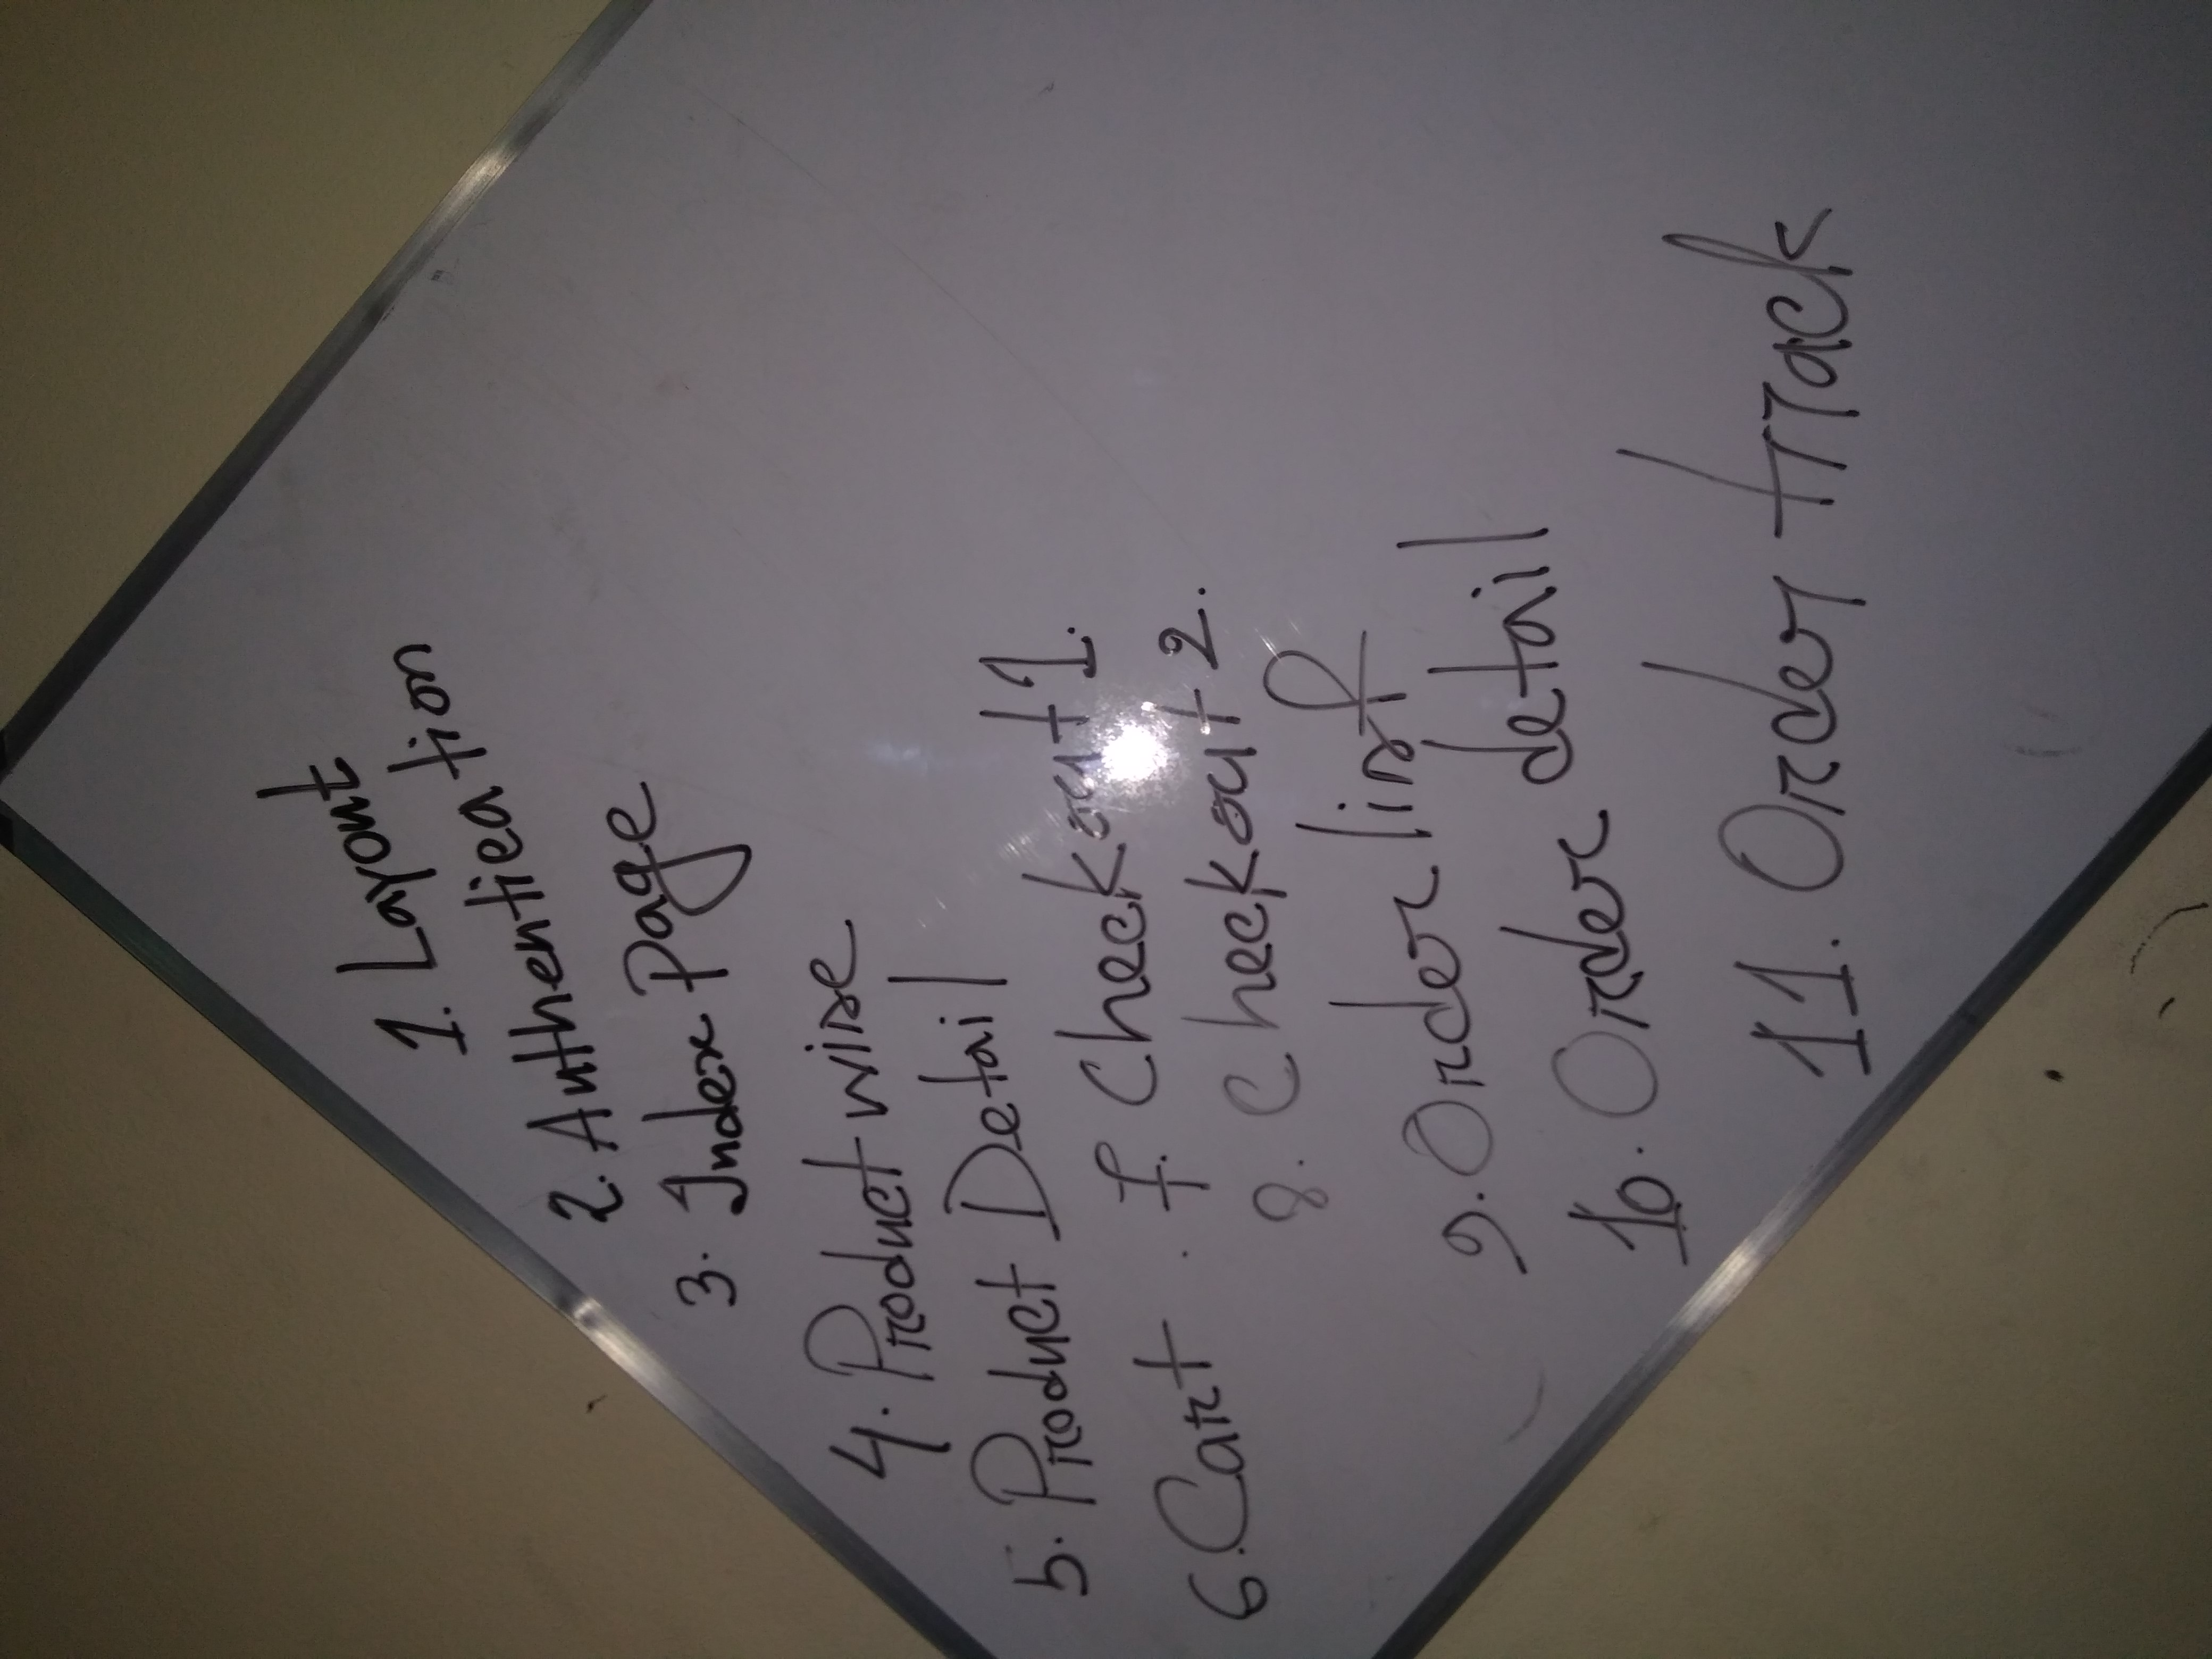 1. Layout
2. Authentication
3. Index Page
4. Product wise
5. Product Detail
6. Cart . 7. Checkout 1.
8. Checkout 2.
9. Order list
10. Order detail
11. Order track